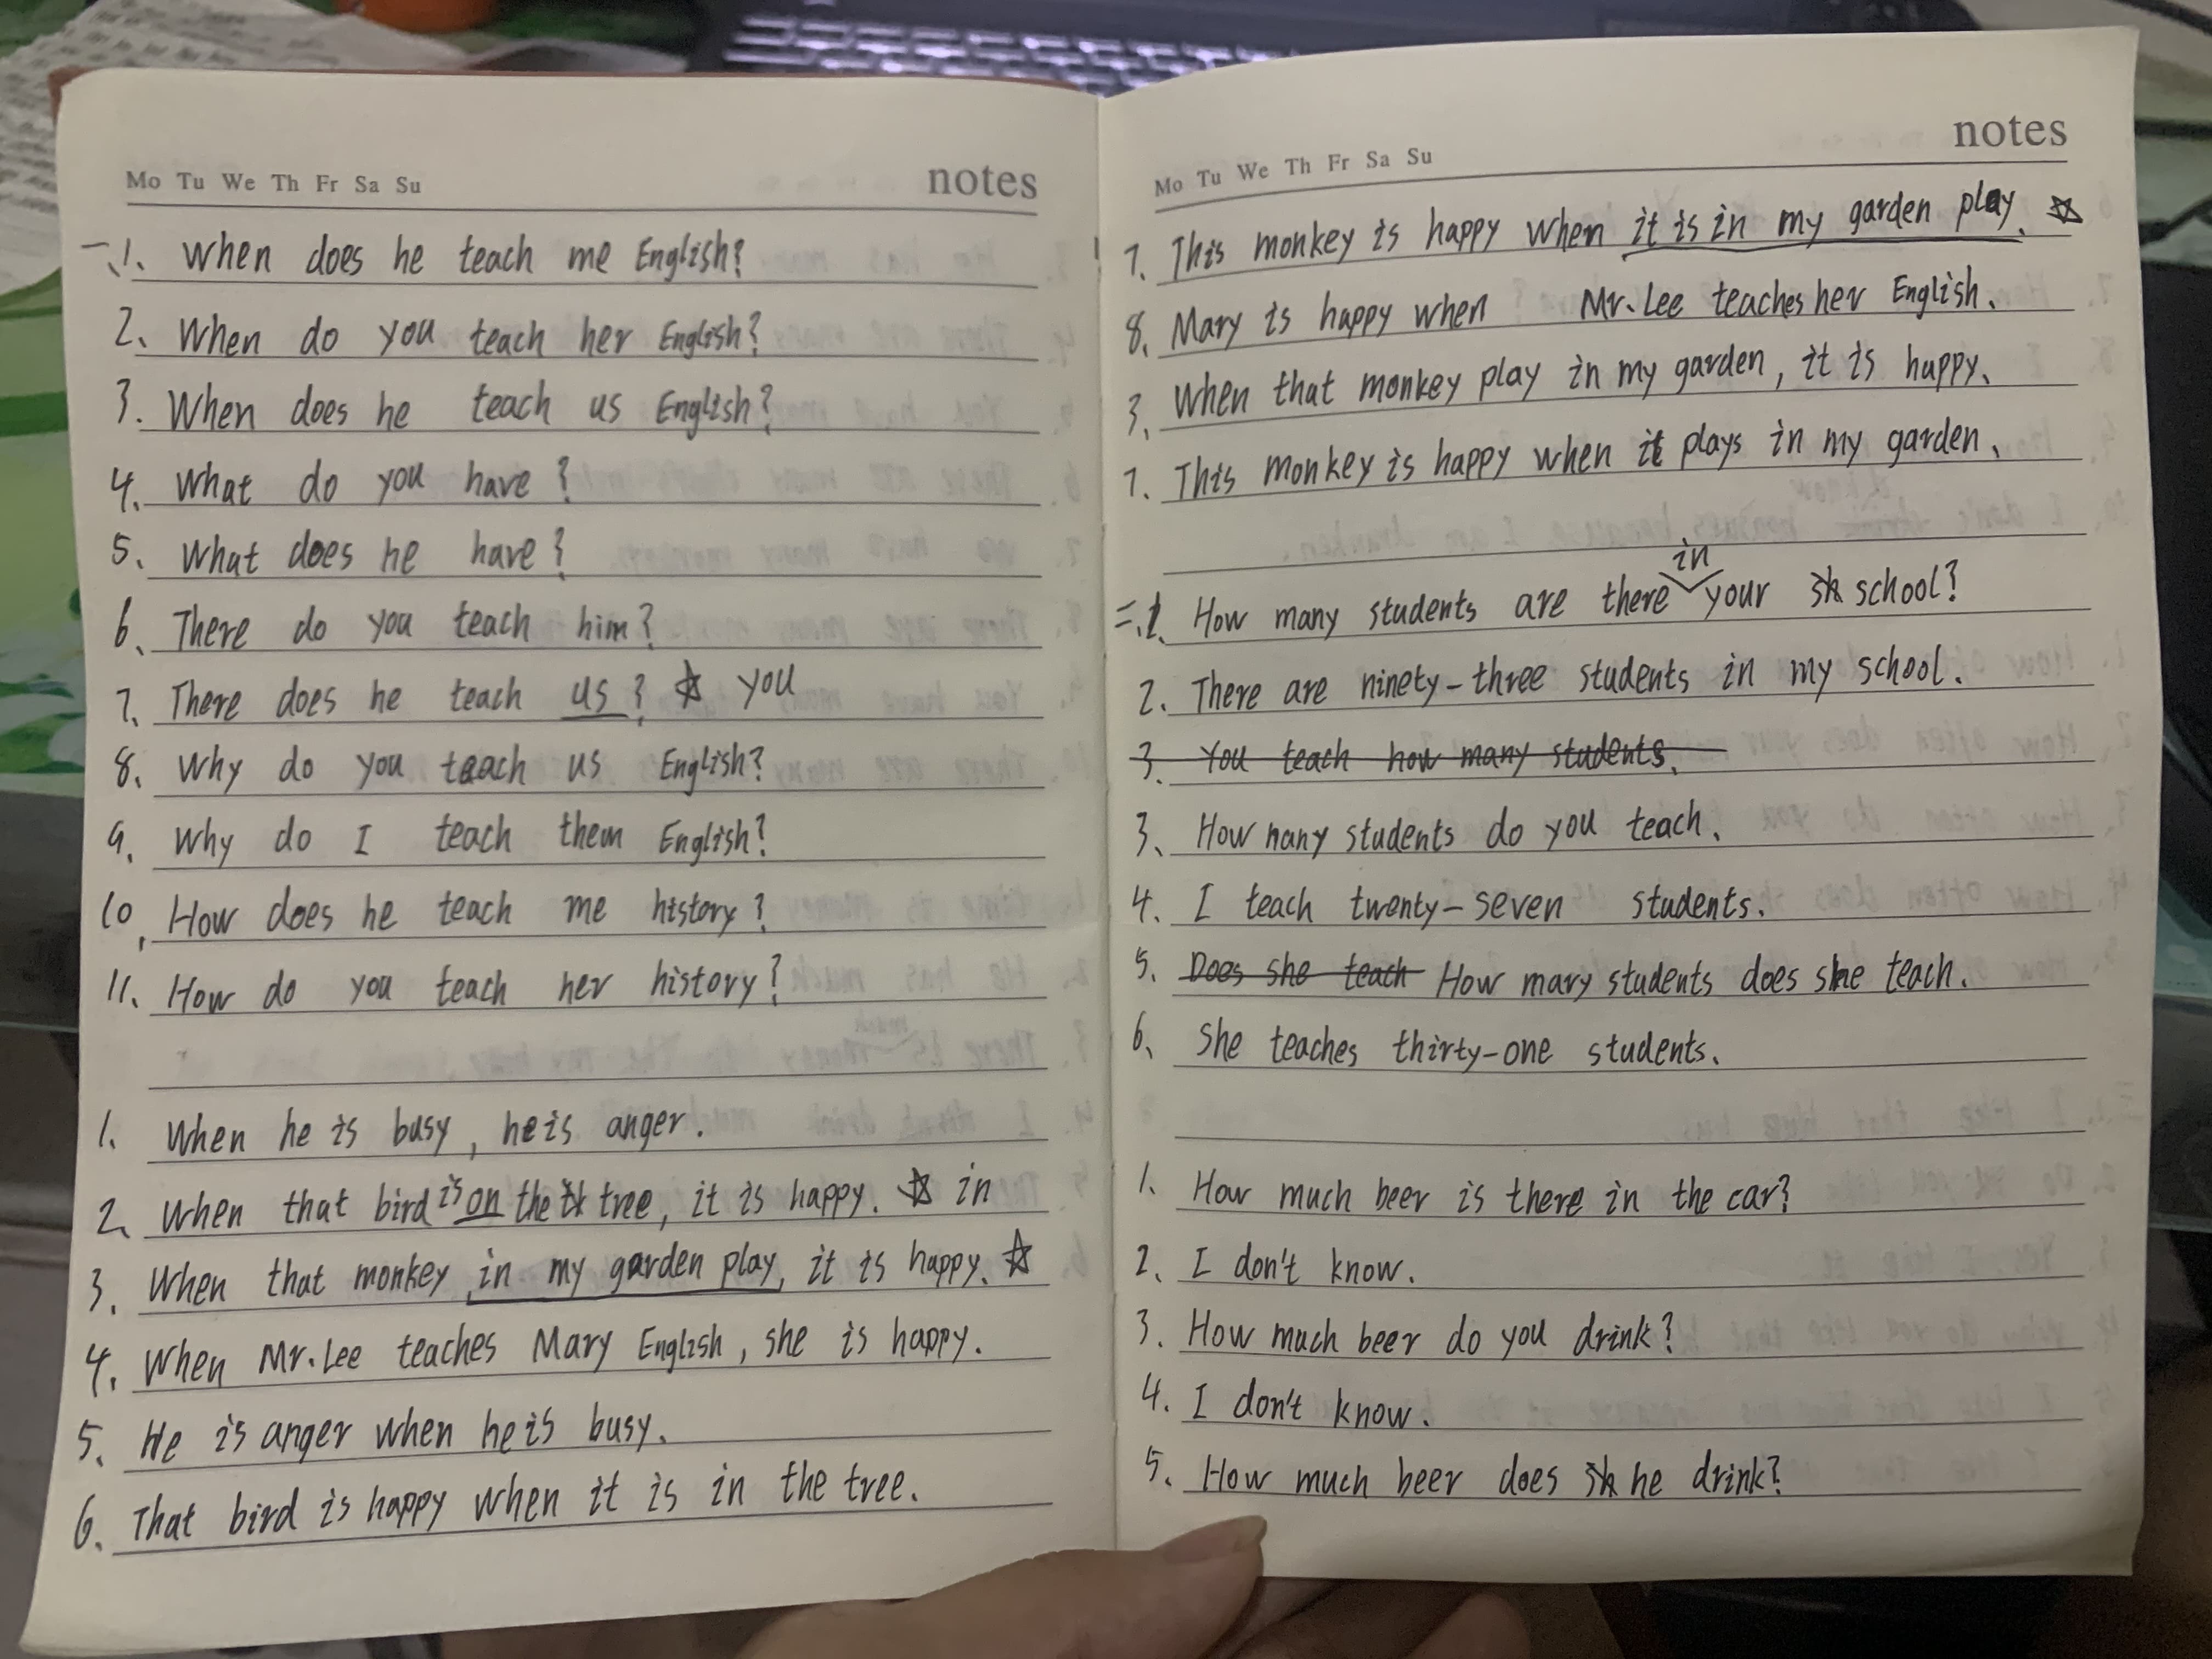 Mo Tu We Th Fr Sa Su notes
一、1. When does he teach me English?
2、 When do you teach her English?
3. When does he teach us English?
4. What do you have?
5、 What does he have?
6、 There do you teach him?
7. There does he teach us? ☆ you
8. Why do you teach us English?
9. Why do I teach them English?
10、 How does he teach me history?
11、 How do you teach her history?
1. When he is busy, he is anger.
2、 When that bird is on the tree, it is happy. ☆ in
3. When that monkey in my garden play, it is happy. ☆
4. When Mr. Lee teaches Mary English, she is happy.
5. He is anger when he is busy.
6. That bird is happy when it is in the tree.
Mo Tu We Th Fr Sa Su notes
7. This monkey is happy when it is in my garden play. ☆
8. Mary is happy when Mr. Lee teaches her English.
3、 When that monkey play in my garden, it is happy.
7. This monkey is happy when it plays in my garden.
in
二、1. How many students are there your school?
2. There are ninety-three students in my school.
3. You teach how many students.
3、 How nany students do you teach.
4. I teach twenty-seven students.
5. Does she teach How mary students does she teach.
6、 She teaches thirty-one students.
1. How much beer is there in the car?
2、 I don't know.
3. How much beer do you drink?
4. I don't know.
5. How much beer does he drink?